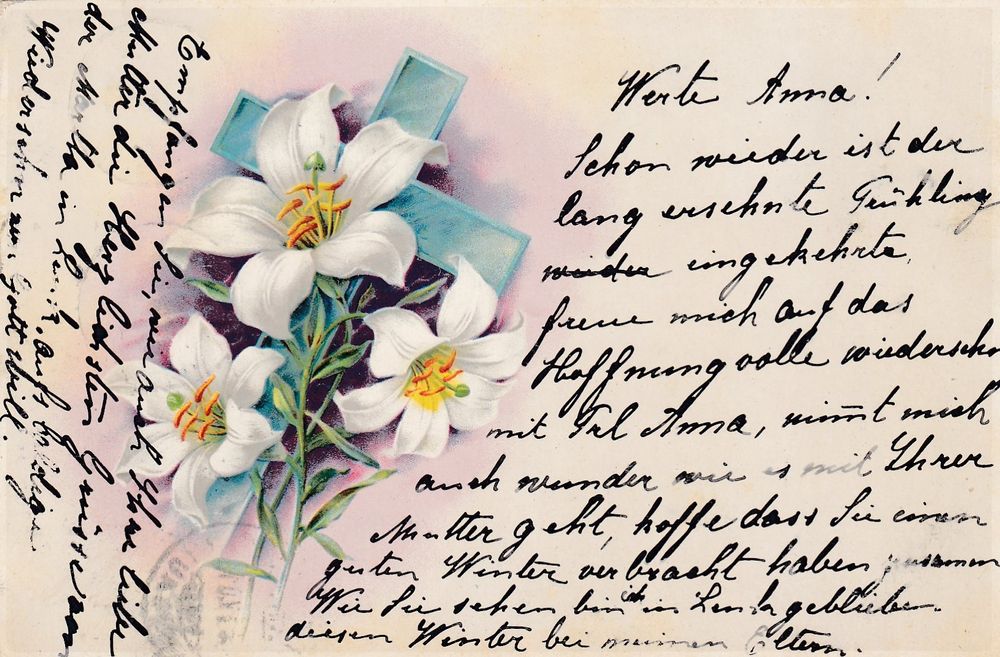 Werte Anna!
Schon wieder ist der
lang ersehnte Frühling
wieder eingekehrte,
freue mich auf das
Hoffnungvolle wiedersehn
mit Frl Anna, nimt mich
auch wunder wie es mit Ihrer
Mutter geht, hoffe dass Sie einen
guten Winter verbracht haben zusamen
Wie Sie sehen bin ich in Lenk geblieben
diesen Winter bei meinen Eltern.
Empfangen Sie, wie auch Ihre liebe
Mutter die Herzlichsten Grüsse von
der Martha in Lenk, aufs baldige
Wiedersehn wen Gott will.